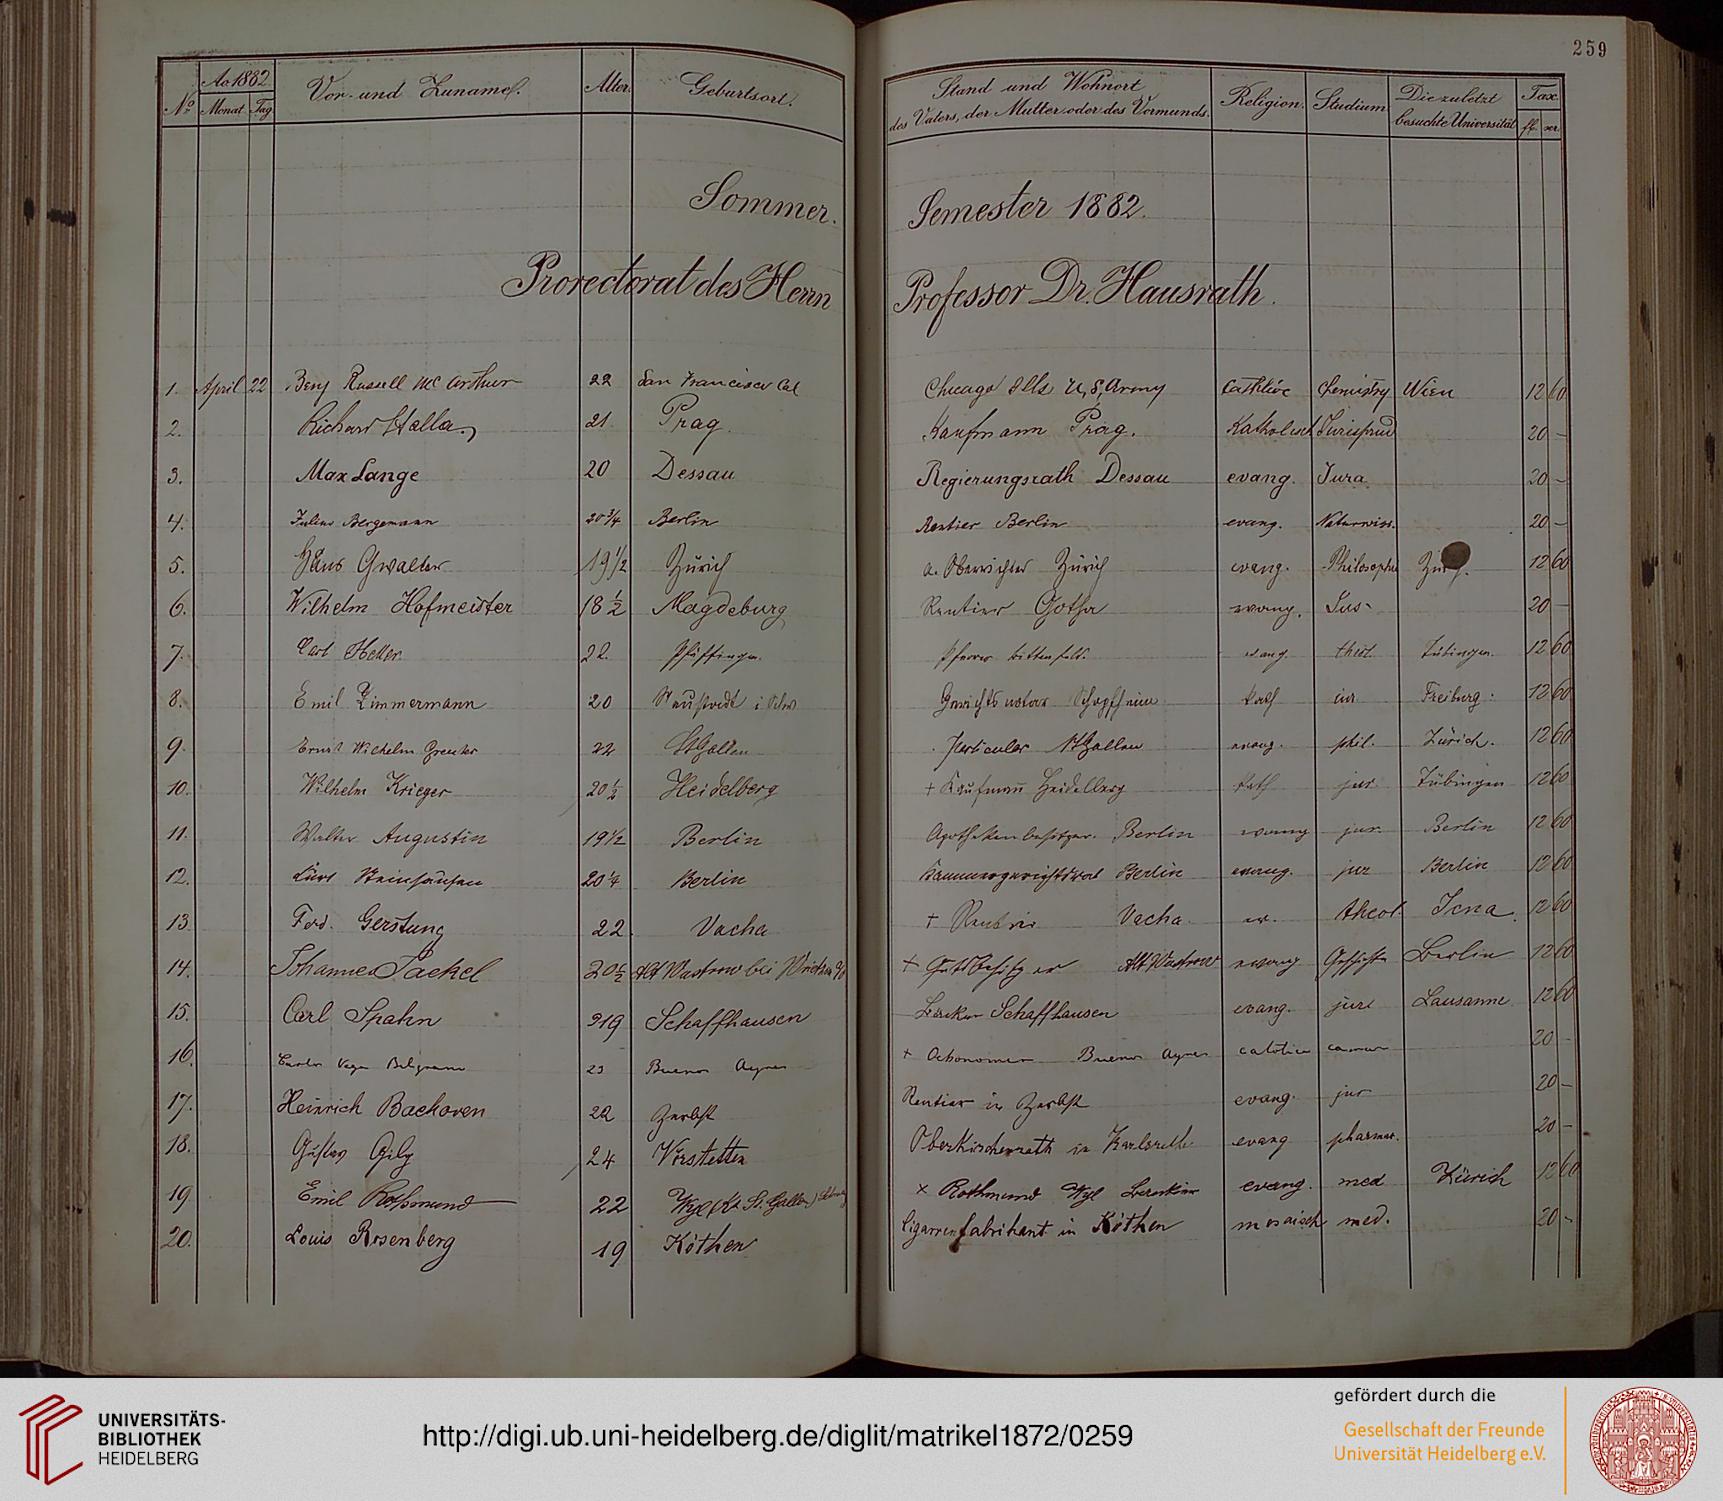 259
Ao 1882
No
Monat
Tag
Vor- und Zuname.
Alter.
Geburtsort.
Stand und Wohnort
des Vaters, der Mutter oder des Vormunds.
Religion.
Studium
Die zuletzt
besuchte Universität
Tax.
Sommer-
Semester 1882.
Prorectorat des Herrn
Professor Dr. Hausrath.
1. April 22 Benj Russell Mc Arthur 22 San Francisco Cal Chicago Ills U,S,Army Catholic Chemistry Wien 12 60
2. Richard Stalla 21 Prag Kaufmann Prag. Katholisch Jurisprud 20 -
3. Max Lange 20 Dessau Regierungsrath Dessau evang. Jura 20 -
4. Julius Bergemann 20 3/4 Berlin Rentier Berlin evang. Naturwiss. 20 -
5. Hans Gwalter 19 1/2 Zürich a. Oberrichter Zürich evang. Philosophie Zürich. 12 60
6. Wilhelm Hofmeister 18 1/2 Magdeburg Rentier Gotha evang. Jus- 20 -
7. Carl Heller 22. Pfarrer evang. theol. Tübingen 12 60
8. Emil Zimmermann 20 Gerichtsnotar Schopfheim kath jur Freiburg. 12 60
9. Ernst Wilhelm Greuter 22 St Gallen Particular St Gallen evang. phil. Zürich. 12 60
10. Wilhelm Krieger 20 1/2 Heidelberg + Kaufmann Heidelberg kath jur Tübingen 12 60
11. Walter Augustin 19 1/2 Berlin Apothekenbesitzer. Berlin evang jur. Berlin 12 60
12. Kurt Steinhausen 20 1/4 Berlin Kammergerichtsrat Berlin evang. jur Berlin 12 60
13. Ferd. Gerstung 22. Vacha + Rentier Vacha ev. theol. Jena. 12 60
14. Johannes Paekel 20 1/2 Alt Wustrow bei Wriezen + Gutsbesitzer Alt Wustrow evang Geschichte Berlin 12 60
15. Carl Spahn 19 Schaffhausen Schaffhausen evang. jur Lausanne 12 60
16. Carlos Vega Belgrano 23 Buenos Ayres + Buenos Ayres catolica 20 -
17. Heinrich Backoven 22 Zerbst Rentier in Zerbst evang. jur 20 -
18. Gustav Gilg 24 Vörstetten Oberkirchenrath in Karlsruhe evang pharmac. 20 -
19 Emil Rothmund 22 Wyl (Kt St. Gallen) Schweiz x Rothmund Wyl evang. med Zürich 12 60
20. Louis Rosenberg 19 Köthen Cigarrenfabrikant in Köthen mosaisch med. 20 -
UNIVERSITÄTS-
BIBLIOTHEK
HEIDELBERG
http://digi.ub.uni-heidelberg.de/diglit/matrikel1872/0259
gefördert durch die
Gesellschaft der Freunde
Universität Heidelberg e.V.